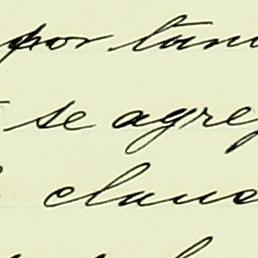 por tan
se agre
clau